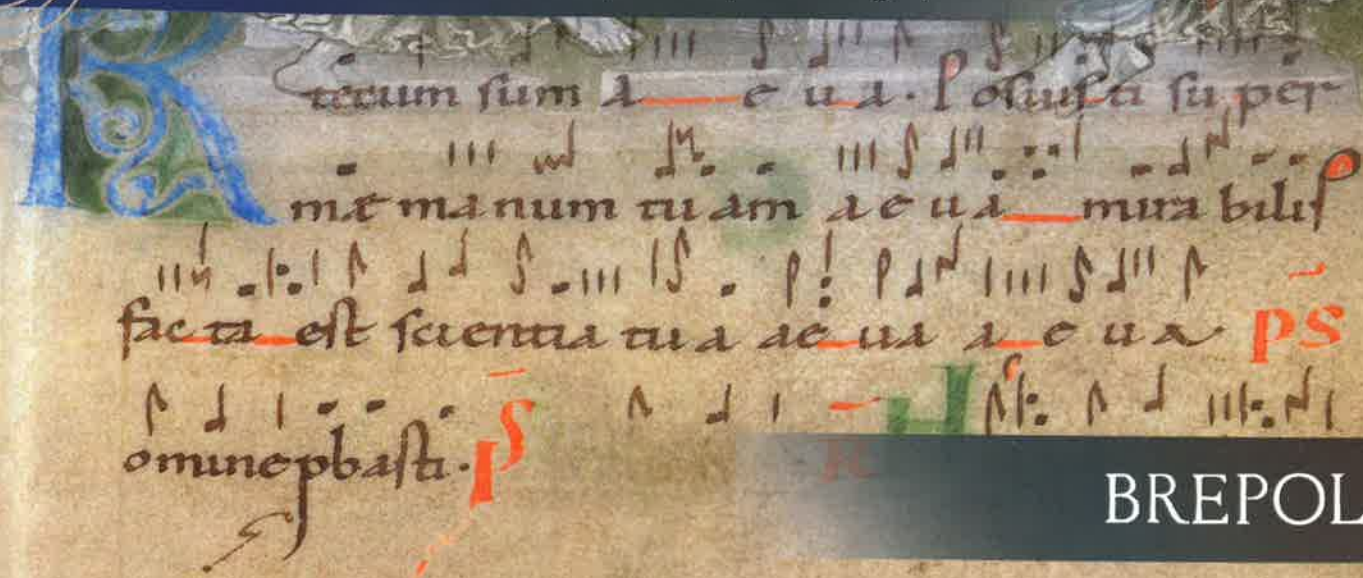 R tecum sum a e u a. Posuisti super
mæ manum tuam a e u a mirabilis
facta est scientia tua ae ua a e u a ps
omine pbasti. ps H
BREPOL